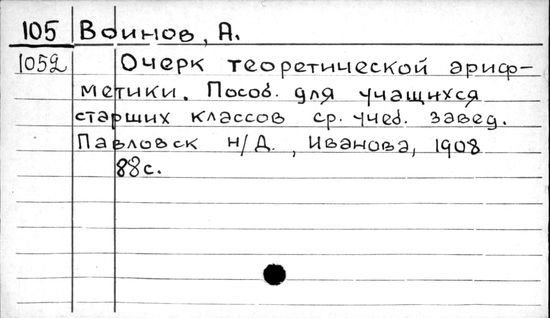 105 Воинов, А.
1052 Очерк теоретической ариф-
метики. Пособ. для учащихся
старших классов ср. учеб. завед.
Павловск н/Д., Иванова, 1908
88с.